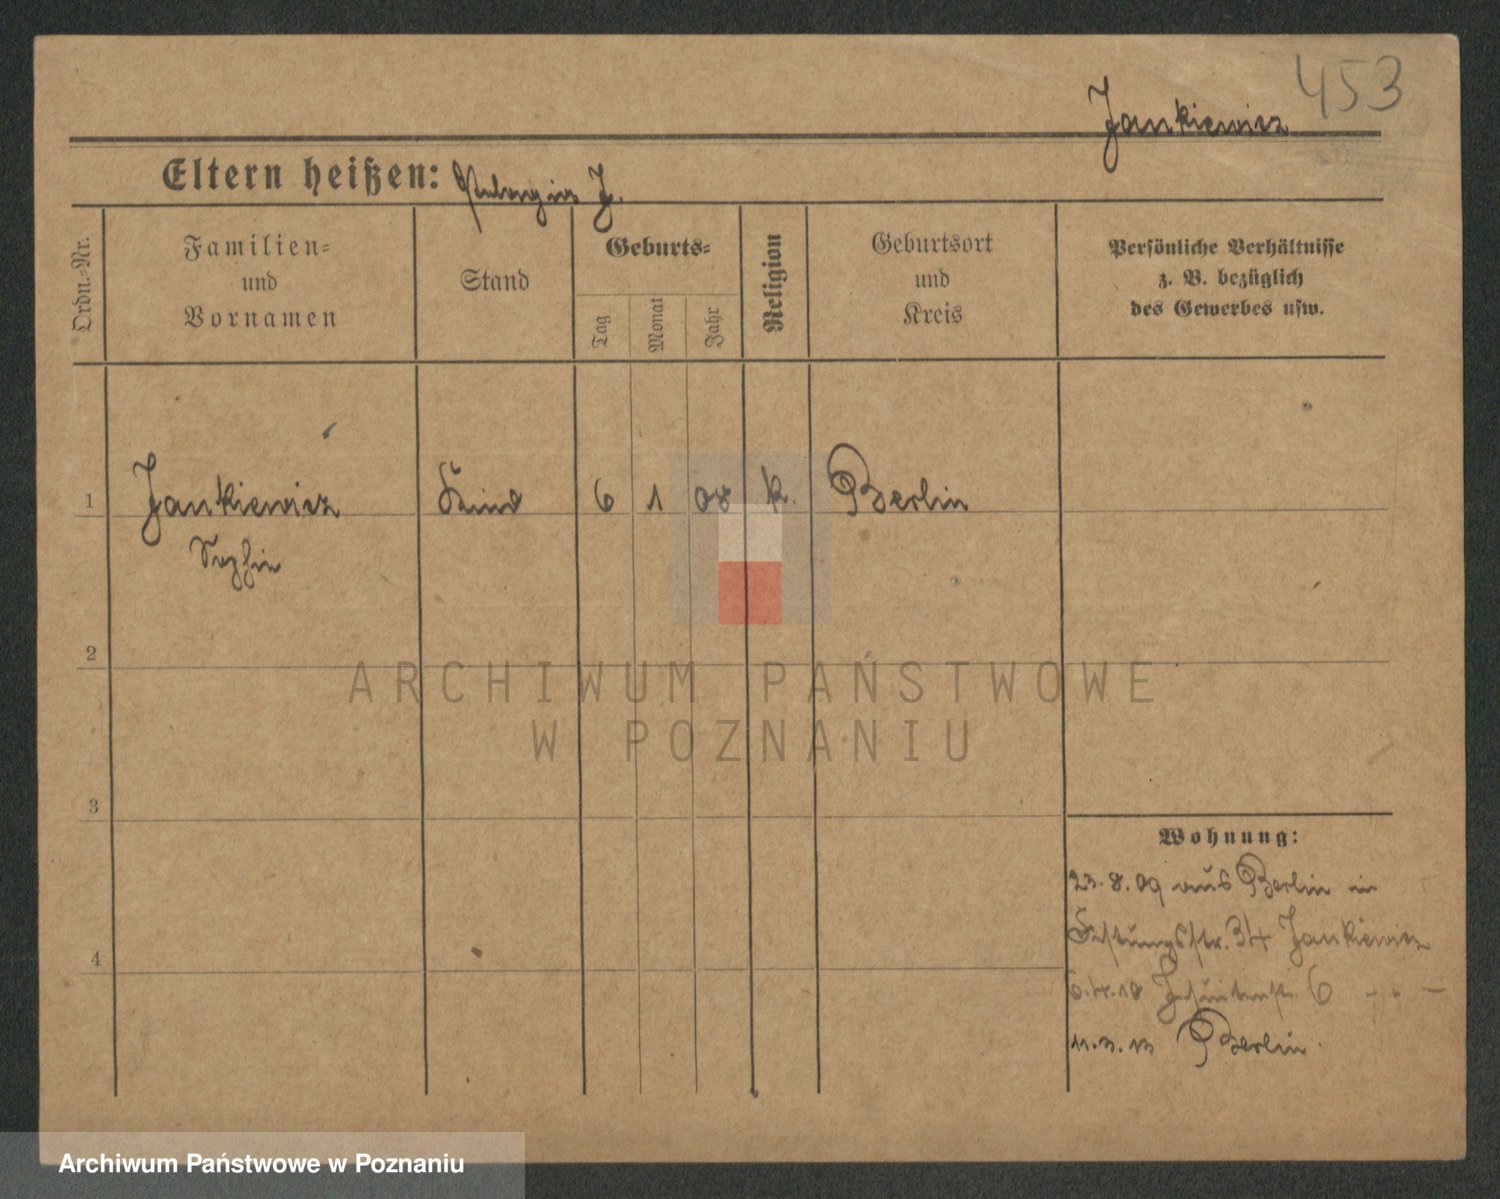 453
Jankiewicz
Eltern heißen: Pelagia J.
Ordn.=Nr.
Familien=
und
Vornamen
Stand
Geburts=
Tag
Monat
Jahr
Religion
Geburtsort
und
Kreis
Persönliche Verhältnisse
z. B. bezüglich
des Gewerbes usw.
1 Jankiewicz Kind 6 1 08 k. Berlin
Sophie
2
3
4
Wohnung:
23.8.09 aus Berlin in
Festungsstr. 34 Jankiewicz
6.4.10 Jesuitenstr. 6 - " -
11.3.13 Berlin.
ARCHIWUM PAŃSTWOWE
W POZNANIU
Archiwum Państwowe w Poznaniu